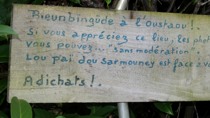 Bienbingude à l'Oustaou !.
Si vous appréciez ce lieu, les phot
vous pouvez... "sans modération".
Lou païs dou Sarmouney est face à v
Adichats !.